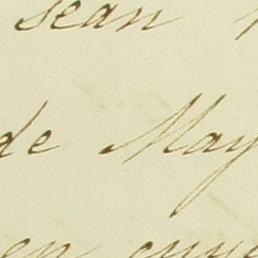 sean
de May
en